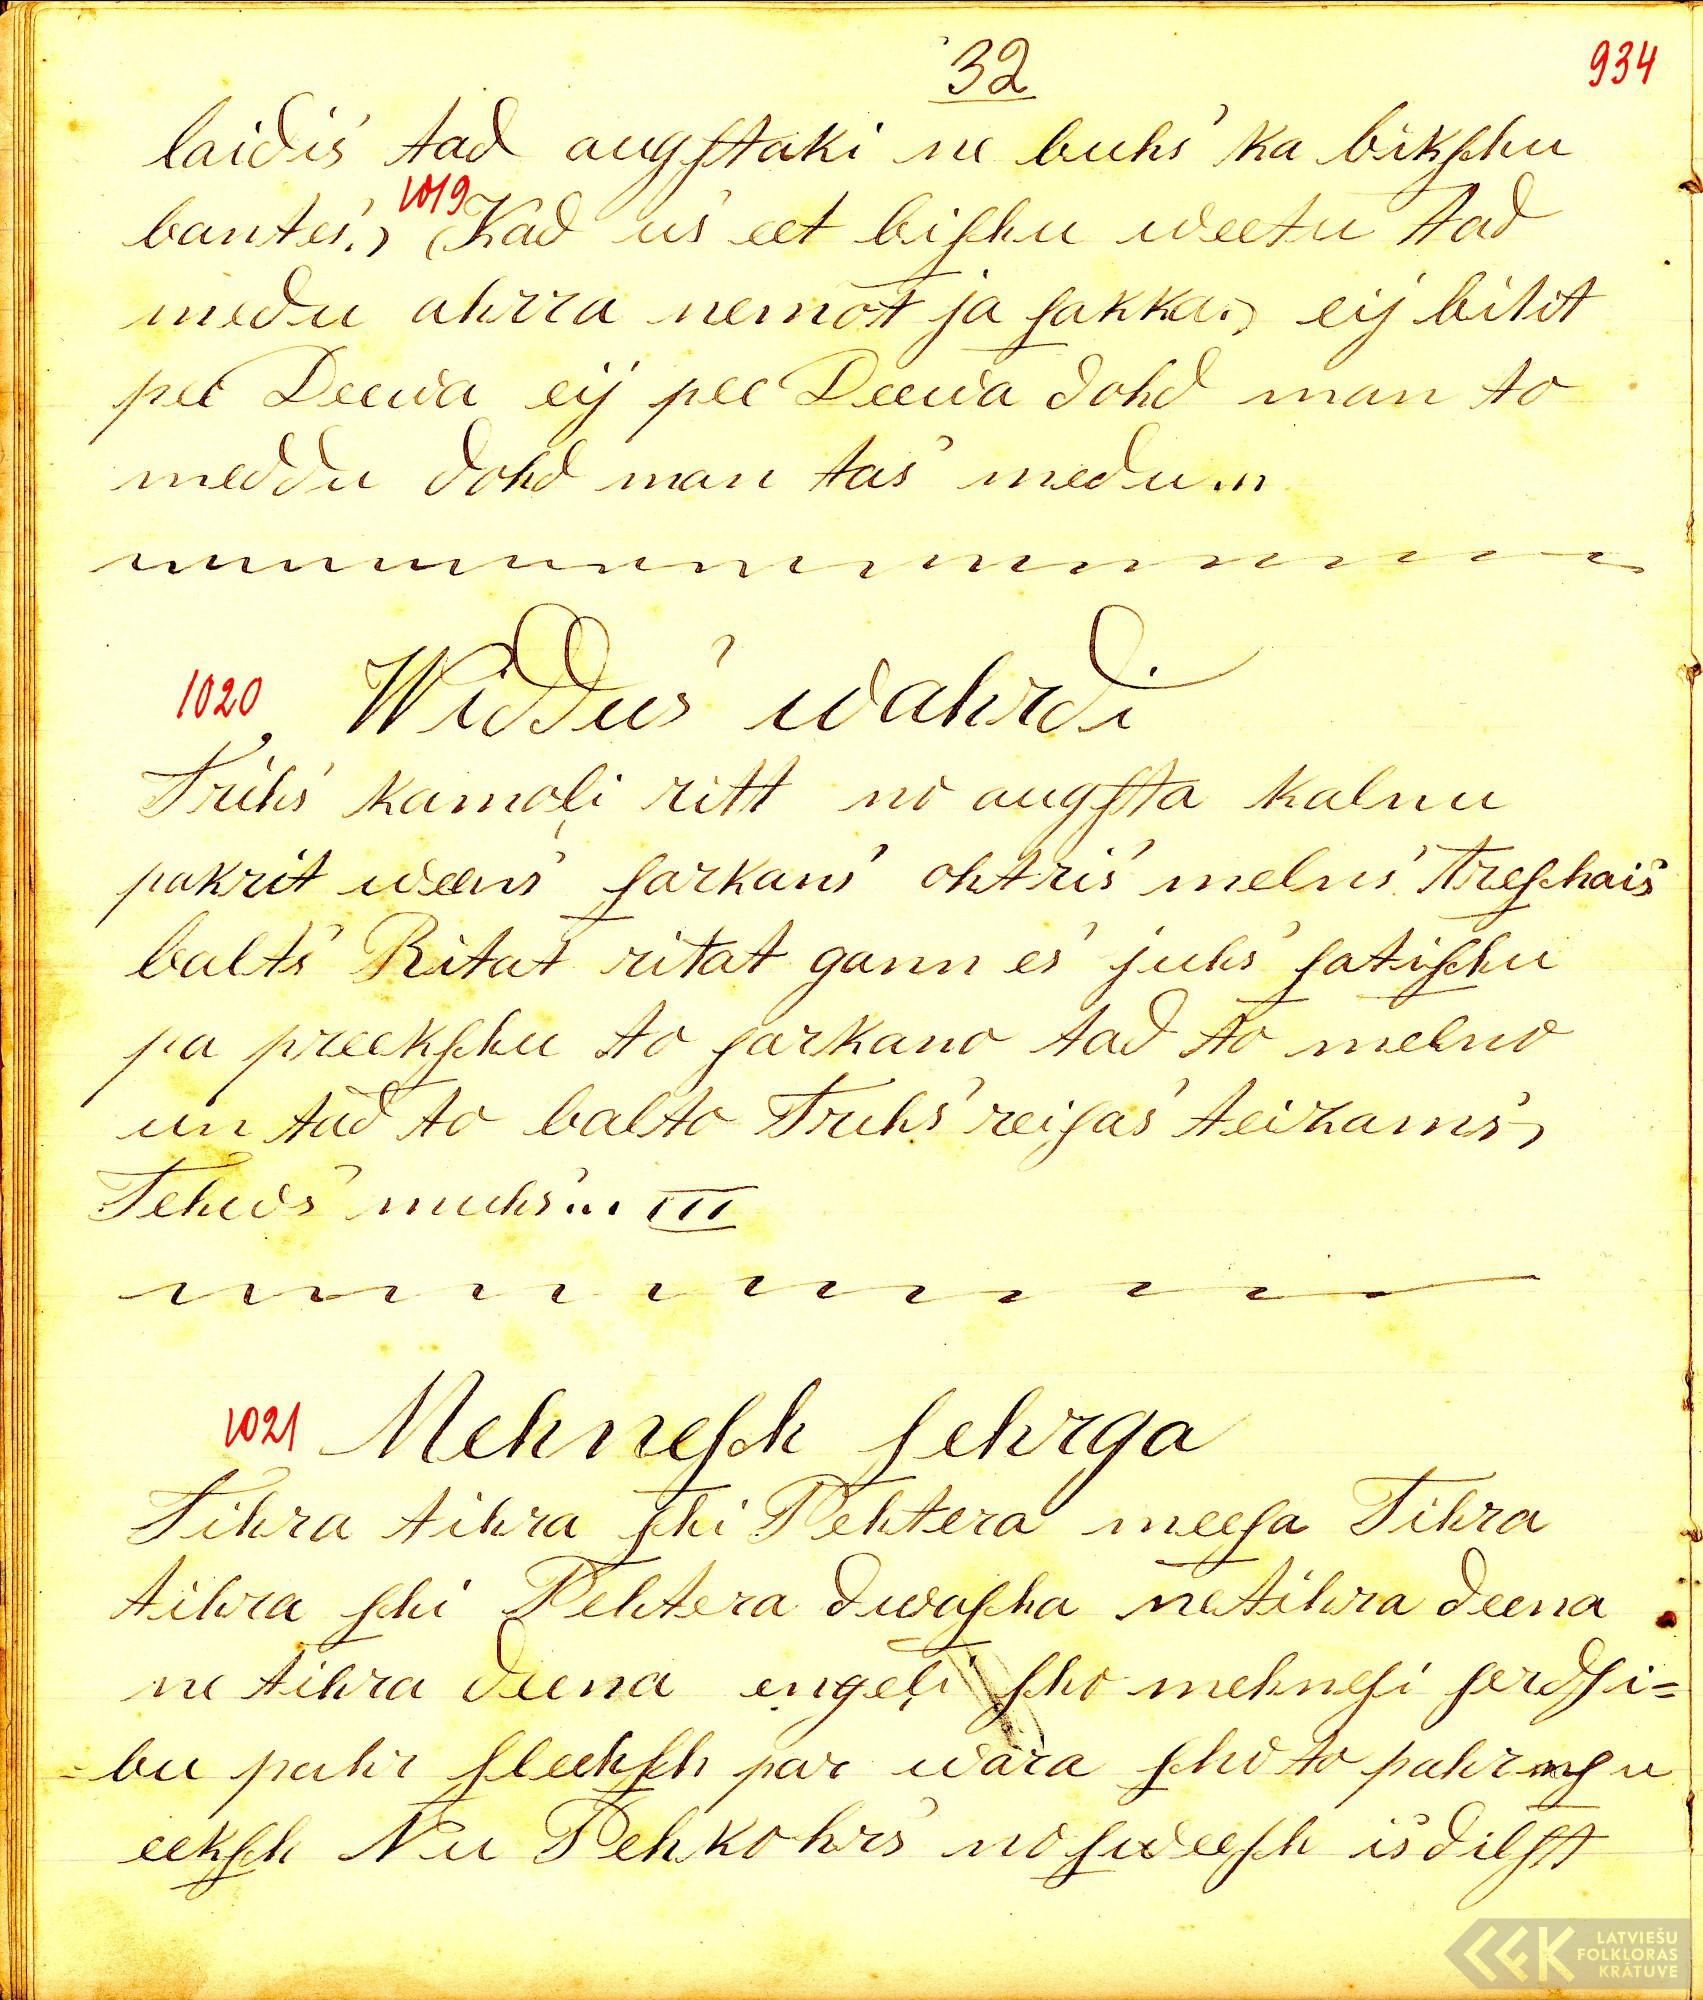 32
934
laidis tad augſtaki ne buhs ka bikſchu
bantes.) 1019 (Kad us eet biſchu weetu tad
medu ahrra nemot ja ſakka.) eij bitit
pee Deewa eij pee Deewa dohd man to
meddu dohd man tas medu...
1020, Widdus wahrdi
Trihs kamoļi ritt no augſta kalnu
pakrit weens ſarkans ohtris melns treſchais
balts Ritat ritat gann es juhs ſatiſchu
pa preekſchu to ſarkano tad to melno
un tad to balto Trihs reiſas teizams,
Tehws muhs... III
1021 Mehneſch ſehrga
Tihra tihra ſchi Pehtera meeſa Tihra
tihra ſchi Pehtera dwaſcha netihra deena
ne tihra deena eņgeļi ſcho mehneſi ſerdſi=
=bu pahr ſleekſch par wara ſchoto pahr
eekſch Nu Pehkohrs no ſweeſch is dilſt
LATVIEŠU
FOLKLORAS
KRĀTUVE